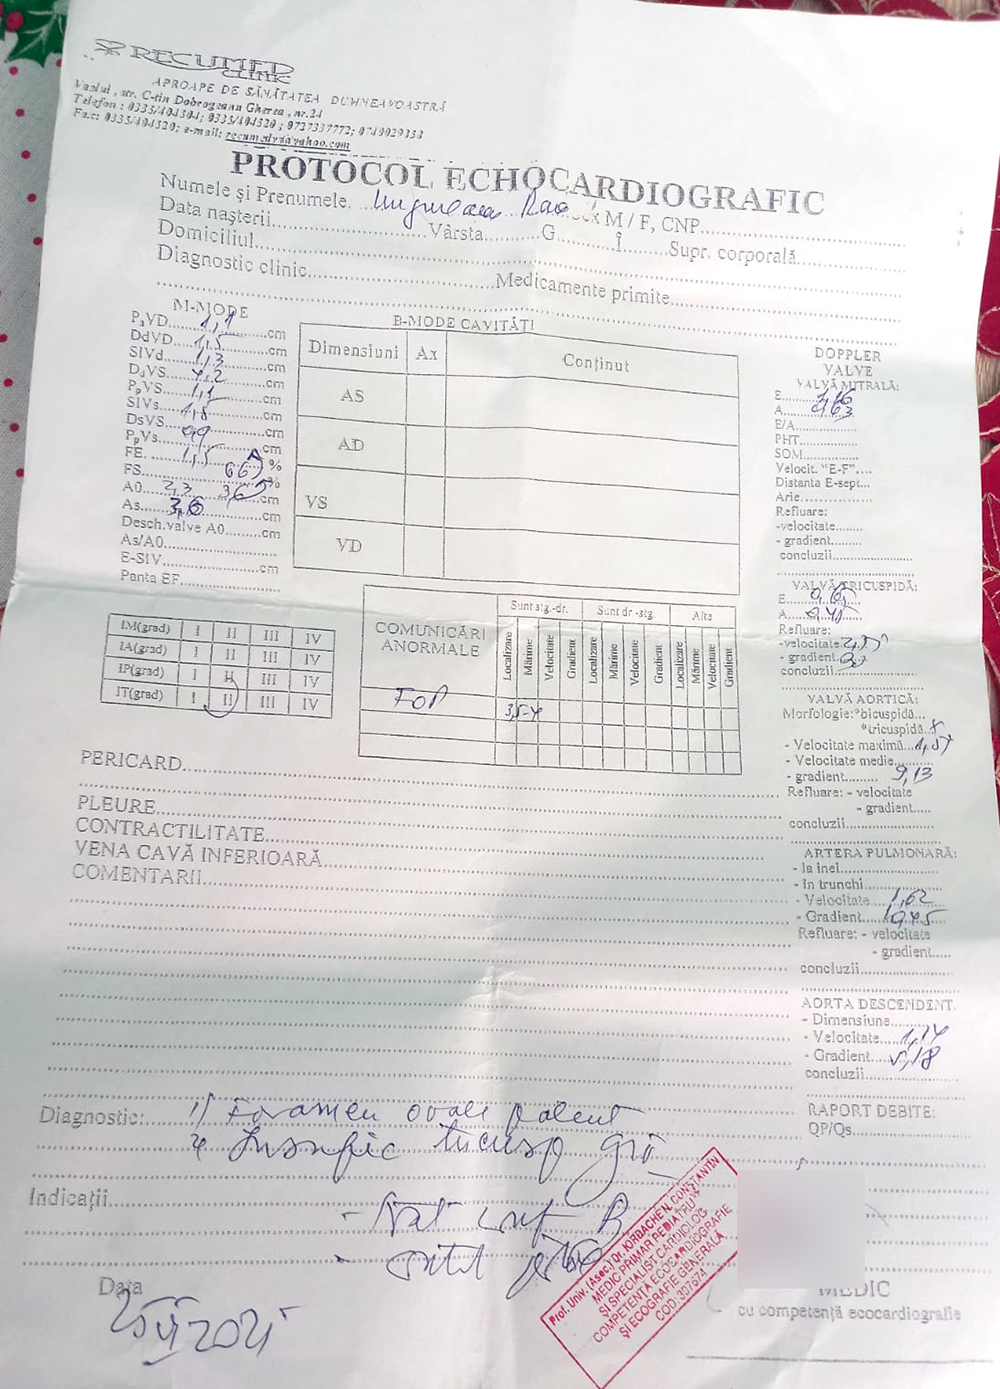 RECUMED
CLINIC
APROAPE DE SĂNĂTATEA DUMNEAVOASTRĂ
Vaslui, str. C-tin Dobrogeanu Gherea, nr.24
Telefon : 0335/404504; 0335/404520 ; 0727337772; 0749029354
Fax: 0335/404520; e-mail: recumedvs@yahoo.com
PROTOCOL ECHOCARDIOGRAFIC
Numele şi Prenumele. M / F, CNP
Data naşterii Vârsta G Î Supr. corporală
Domiciliul
Diagnostic clinic Medicamente primite
M-MODE
PaVD 1,1 cm
DdVD 1,5 cm
SIVd 1,3 cm
DdVS 4,2 cm
PpVS 1,1 cm
SIVs 1,8 cm
DsVS cm
PpVs 1,5 cm
FE. 66 %
FS 36 %
A0 2,3 cm
As 3,6 cm
Desch.valve A0 cm
As/A0
E-SIV cm
Panta EF
B-MODE CAVITĂŢI
Dimensiuni Ax Conţinut
AS
AD
VS
VD
DOPPLER
VALVE
VALVĂ MITRALĂ:
E
A 0,63
E/A
PHT
SOM
Velocit. "E-F"
Distanta E-sept
Arie
Refluare:
-velocitate
- gradient
concluzii
VALVĂ TRICUSPIDĂ:
E 0,65
A 0,45
Refluare:
-velocitate
- gradient
concluzii
IM(grad) I II III IV
IA(grad) I II III IV
IP(grad) I II III IV
IT(grad) I II III IV
COMUNICĂRI
ANORMALE
Sunt stg.-dr. Sunt dr.-stg. Alte
Localizare Mărime Velocitate Gradient Localizare Mărime Velocitate Gradient Localizare Mărime Velocitate Gradient
FOP 3,5-4
VALVĂ AORTICĂ:
Morfologie:*bicuspidă
*tricuspidă x
- Velocitate maximă 1,57
- Velocitate medie
- gradient 9,13
Refluare: - velocitate
- gradient
concluzii
ARTERA PULMONARĂ:
- la inel
- în trunchi
- Velocitate 1,62
- Gradient 10,45
Refluare: - velocitate
- gradient
concluzii
AORTA DESCENDENT.
- Dimensiune
- Velocitate 1,14
- Gradient 5,18
concluzii
RAPORT DEBITE:
QP/Qs
PERICARD
PLEURE
CONTRACTILITATE
VENA CAVĂ INFERIOARĂ
COMENTARII
Diagnostic: 1) Foramen ovale patent
Insufic tricusp
Indicaţii
Data
Prof. Univ. (Asoc) Dr. IORDACHE N. CONSTANTIN
MEDIC PRIMAR PEDIATRU
ŞI SPECIALIST CARDIOLOG
COMPETENŢĂ ECOCARDIOGRAFIE
ŞI ECOGRAFIE GENERALĂ
COD: 307674
MEDIC
cu competenţă ecocardiografie